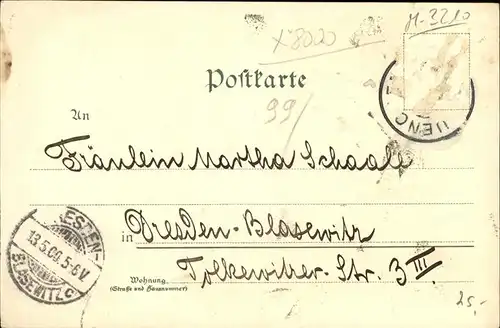 M-3210
X8020
Postkarte
99/
An
UENC
Fräulein Martha Schaale
DRESDEN-
13.5.00.5-6V
BLASEWITZ c
in Dresden-Blasewitz
Wohnung
(Straße und Hausnummer)
Tolkewitzer-Str. 3 III.
25,-